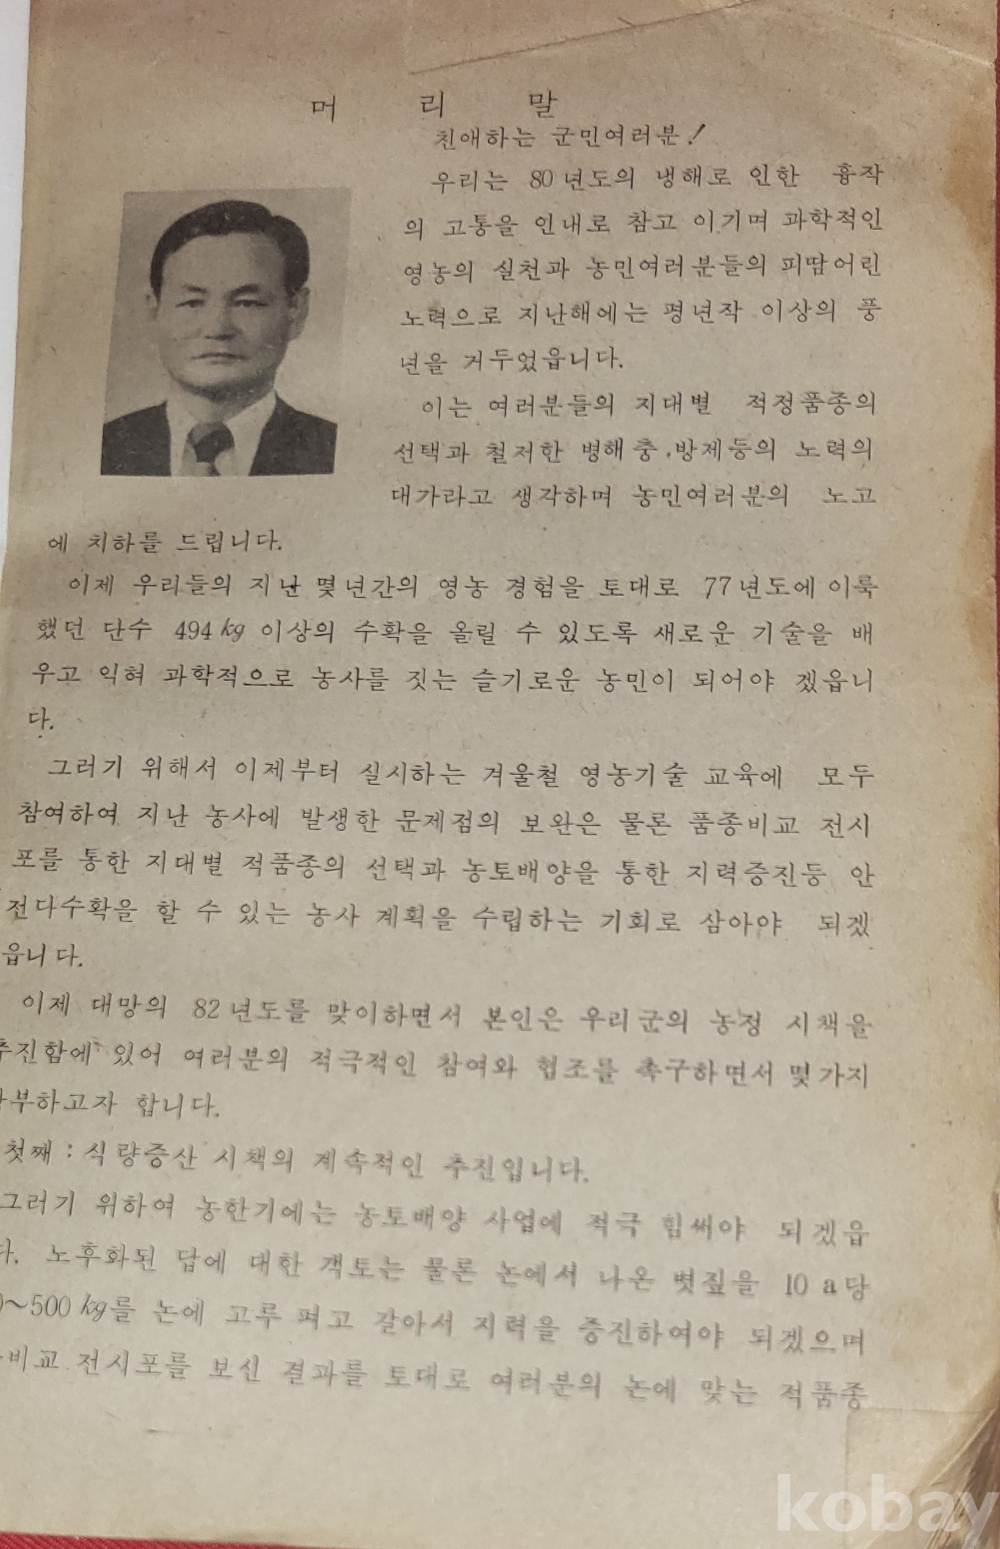 머 리 말
친애하는 군민여러분!
우리는 80년도의 냉해로 인한 흉작
의 고통을 인내로 참고 이기며 과학적인
영농의 실천과 농민여러분들의 피땀어린
노력으로 지난해에는 평년작 이상의 풍
년을 거두었읍니다.
이는 여러분들의 지대별 적정품종의
선택과 철저한 병해충,방제등의 노력의
대가라고 생각하며 농민여러분의 노고
에 치하를 드립니다.
이제 우리들의 지난 몇년간의 영농 경험을 토대로 77년도에 이룩
했던 단수 494kg 이상의 수확을 올릴 수 있도록 새로운 기술을 배
우고 익혀 과학적으로 농사를 짓는 슬기로운 농민이 되어야 겠읍니
다.
그러기 위해서 이제부터 실시하는 겨울철 영농기술 교육에 모두
참여하여 지난 농사에 발생한 문제점의 보완은 물론 품종비교 전시
포를 통한 지대별 적품종의 선택과 농토배양을 통한 지력증진등 안
전다수확을 할 수 있는 농사 계획을 수립하는 기회로 삼아야 되겠
읍니다.
이제 대망의 82년도를 맞이하면서 본인은 우리군의 농정 시책을
추진함에 있어 여러분의 적극적인 참여와 협조를 촉구하면서 몇가지
부하고자 합니다.
첫째 : 식량증산 시책의 계속적인 추진입니다.
그러기 위하여 농한기에는 농토배양 사업에 적극 힘써야 되겠읍
다. 노후화된 답에 대한 객토는 물론 논에서 나온 볏짚을 10a당
~500kg를 논에 고루 펴고 갈아서 지력을 증진하여야 되겠으며
비교 전시포를 보신 결과를 토대로 여러분의 논에 맞는 적품종
kobay